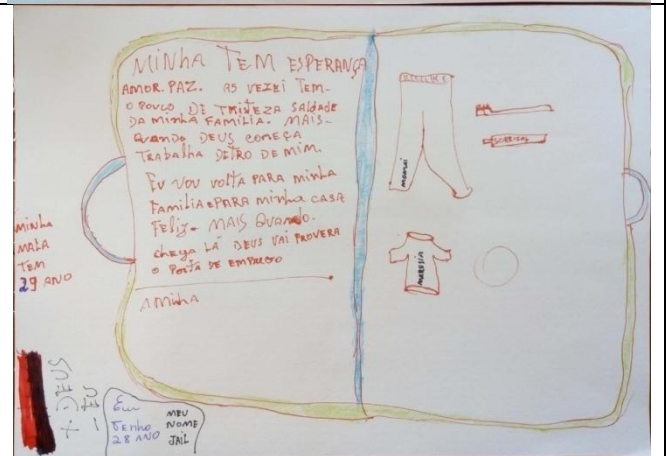 MINHA TEM ESPERANÇA
AMOR. PAZ. AS VEZEI TEM-
O POUCO DE TRITEZA SALDADE
DA MINHA FAMILIA. MAIS-
QUANDO DEUS COMEÇA
TRABALHA DETRO DE MIM.
EU VOU VOLTA PARA MINHA
FAMILIA E PARA MINHA CASA
FELIZ. MAIS QUANDO.
chega LÁ DEUS VAI PROVERA
O PORTA DE EMPREGO
A MINHA
MINHA
MALA
TEM
29 ANO
+ DEUS
- EU
Eu
TENHO
28 ANO
MEU
NOME
JAIL